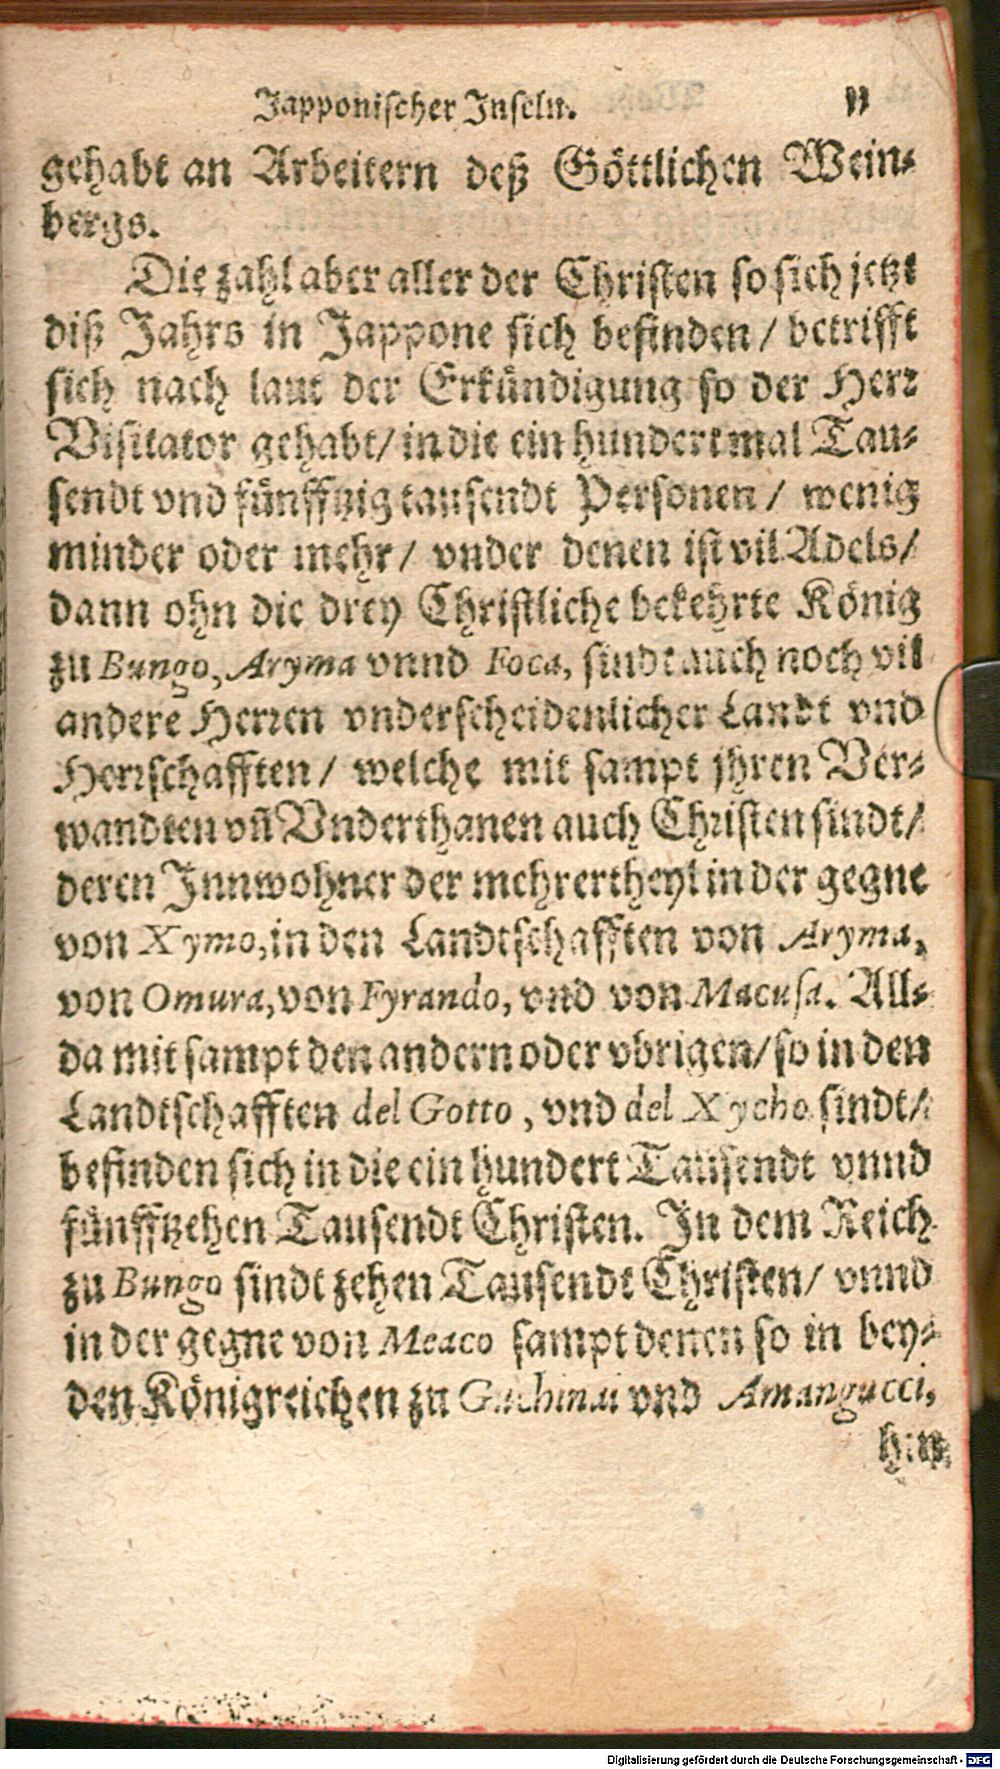 Japponischer Inseln. 11
gehabt an Arbeitern deß Göttlichen Wein-
bergs.
Die zahl aber aller der Christen so sich jetzt
diß Jahrs in Jappone sich befinden / betrifft
sich nach laut der Erkündigung so der Herr
Visitator gehabt / in die ein hundert mal Tau-
sendt vnd fünfftzig tausendt Personen / wenig
minder oder mehr / vnder denen ist vil Adels /
dann ohn die drey Christliche bekehrte König
zu Bungo, Aryma vnnd Foca, sindt auch noch vil
andere Herren vnderscheidenlicher Landt vnd
Herrschafften / welche mit sampt jhren Ver-
wandten vñ Vnderthanen auch Christen sindt /
deren Innwohner der mehrertheyl in der gegne
von Xymo, in den Landtschafften von Aryma,
von Omura, von Fyrando, vnd von Macusa. All-
da mit sampt den andern oder vbrigen / so in den
Landtschafften del Gotto, vnd del Xycho sindt /
befinden sich in die ein hundert Tausendt vnnd
fünfftzehen Tausendt Christen. In dem Reich
zu Bungo sindt zehen Tausendt Christen / vnnd
in der gegne von Meaco sampt denen so in bey-
den Königreichen zu vnd Amangucci,
Digitalisierung gefördert durch die Deutsche Forschungsgemeinschaft - DFG